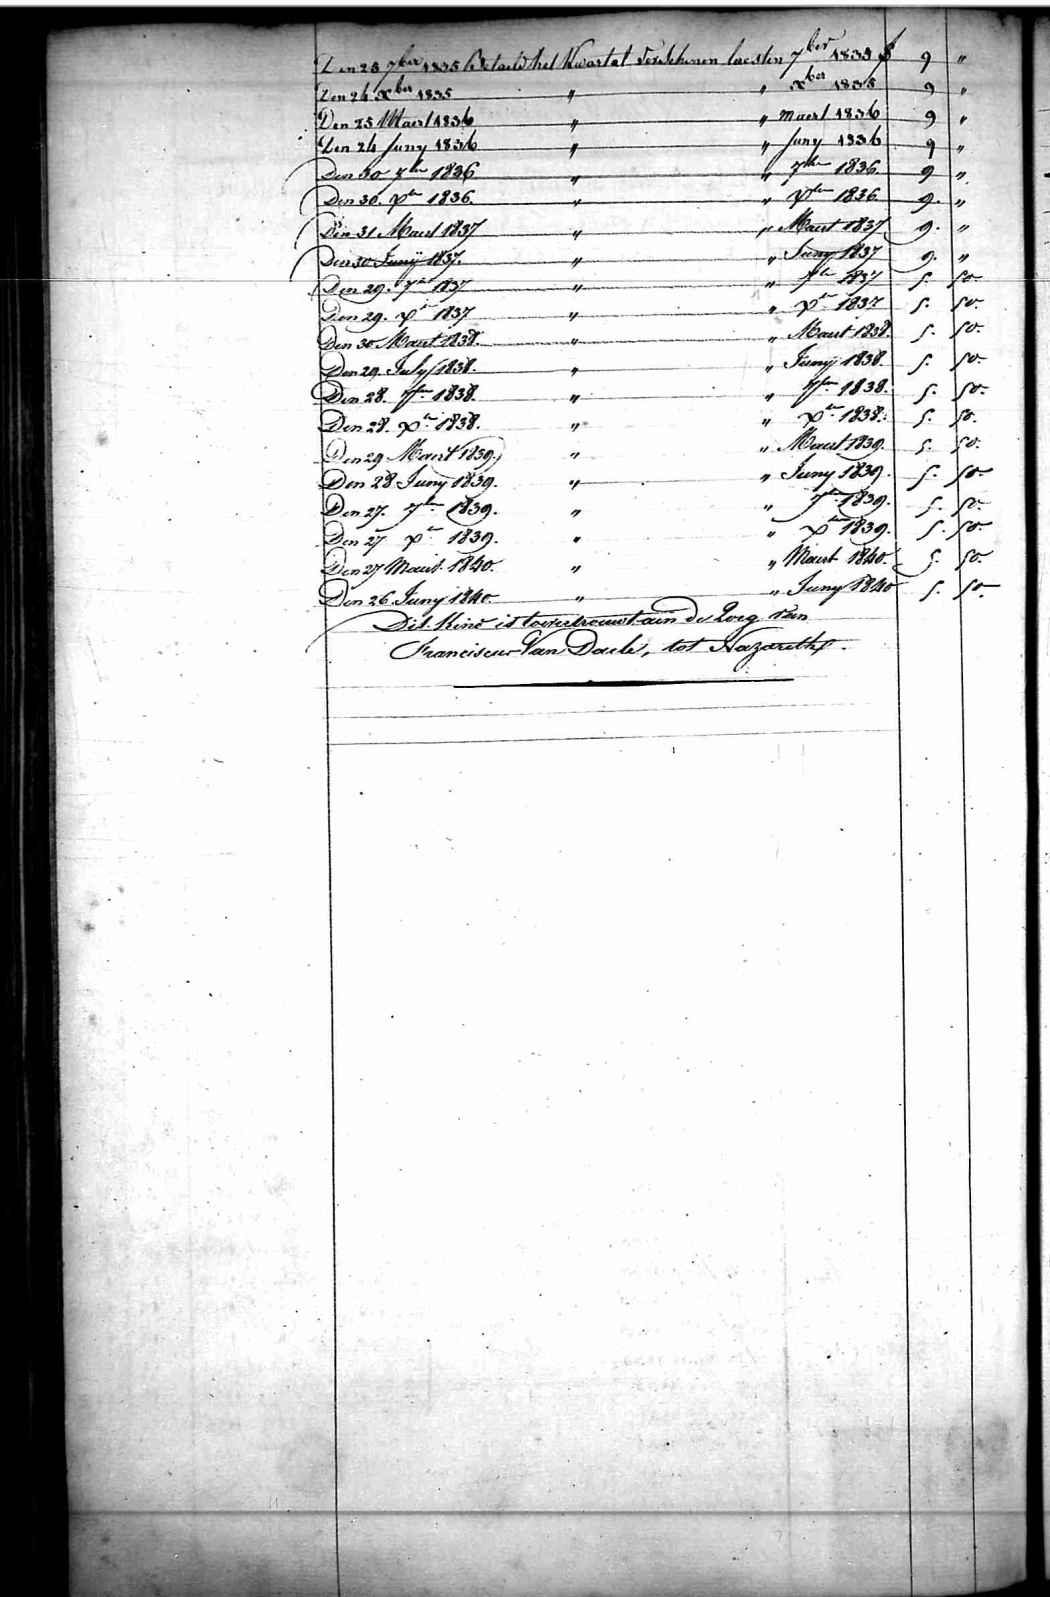 Den 25 7ber 1835 Betaeld het Kwartal verschenen laesten 7ber 1835 f 9 "
Den 26 xber 1835 " " xber 1835 9 "
Den 25 Maert 1836 " " Maert 1836 9 "
Den 24 Juny 1836 " " Juny 1836 9 "
Den 30 7bre 1836. " " 7bre 1836. 9 "
Den 30. xbre 1836. " " xbre 1836. 9. "
Den 31 Maert 1837 " " Maert 1837 9. "
Den 30 Junij 1837. " " Juny 1837 9. "
Den 29. 7bre 1837 " " 7bre 1837 5. 50.
Den 29. xbre 1837 " " xbre 1837 5. 50.
Den 30 Maert 1838. " " Maert 1838. 5. 50.
Den 20. July 1838. " " Junij 1838. 5. 50.
Den 28. 7bre 1838. " " 7bre 1838. 5. 50.
Den 28. xbre 1838. " " xbre 1838. 5. 50.
Den 29 Maert 1839. " " Maert 1839. 5. 50.
Den 28 Juny 1839. " " Juny 1839. 5. 50.
Den 27. 7bre 1839. " " 7bre 1839. 5. 50.
Den 27 xbre 1839. " " xbre 1839. 5. 50.
Den 27 Maert 1840. " " Maert 1840. 5. 50.
Den 26 Juny 1840. " " Juny 1840 5. 50.
Dit Kind is toevertrouwt aen de Zorg van
Franciscus Van Daele, tot Nazareth.